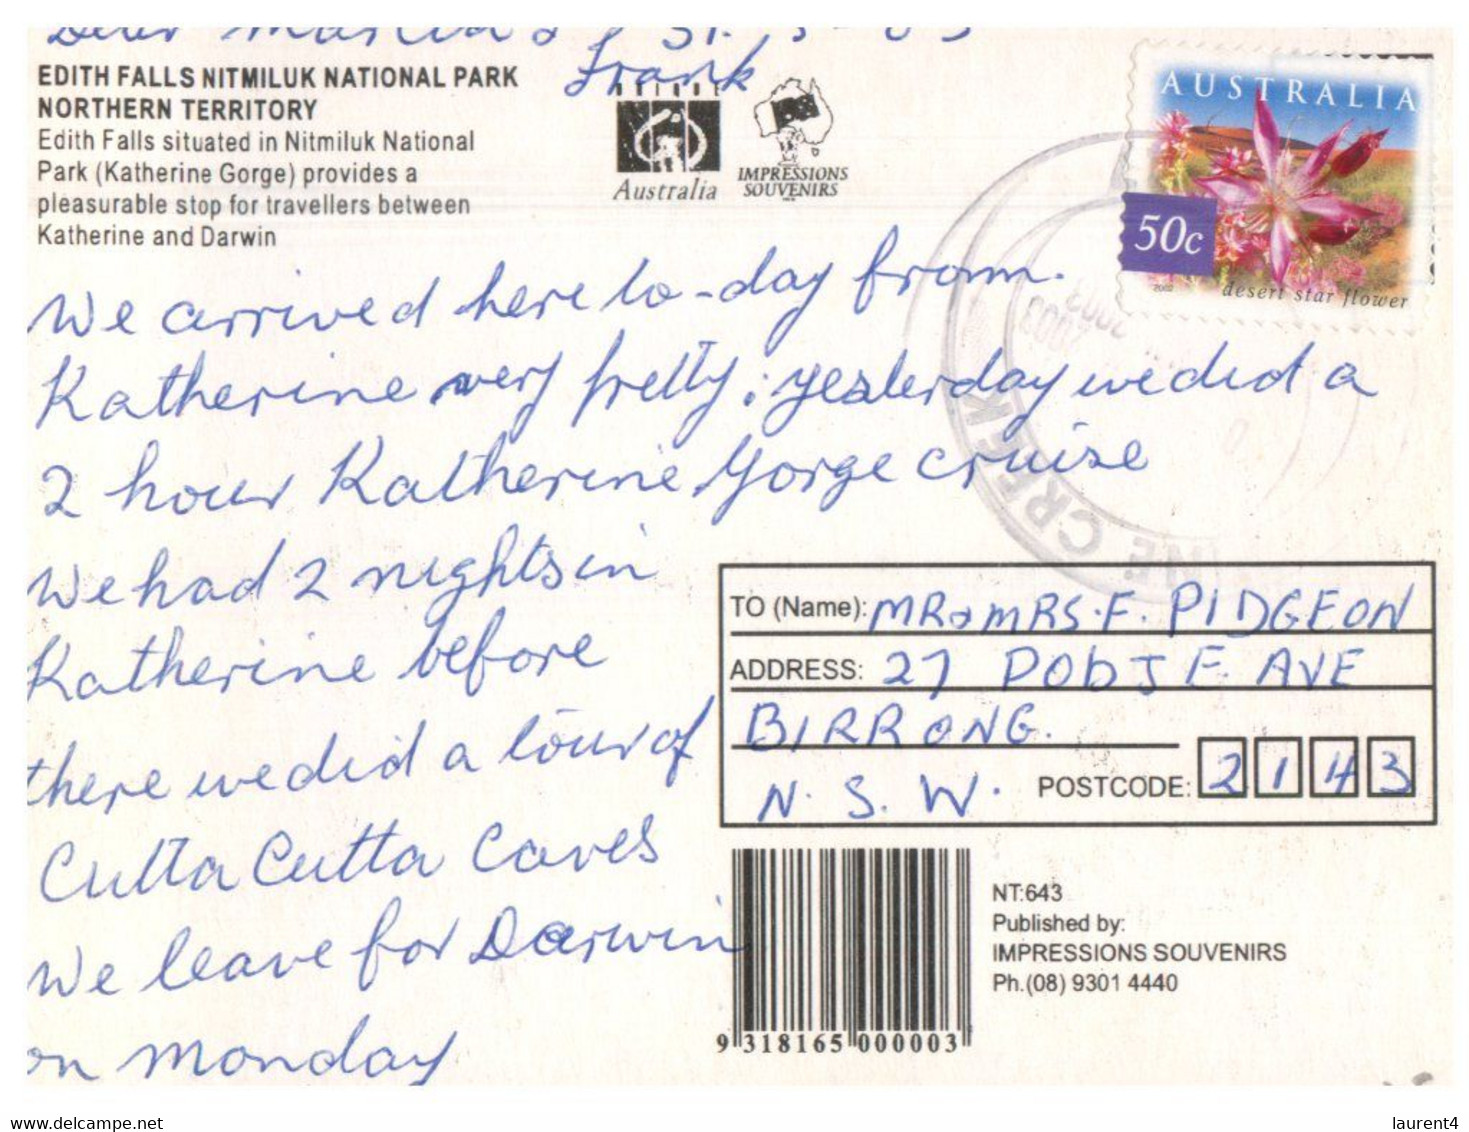 Dear
Frank
EDITH FALLS NITMILUK NATIONAL PARK
NORTHERN TERRITORY
Edith Falls situated in Nitmiluk National
Park (Katherine Gorge) provides a
pleasurable stop for travellers between
Katherine and Darwin
Australia
IMPRESSIONS
SOUVENIRS
AUSTRALIA
50c
2002
desert star flower
2003
CREEK
We arrived here to-day from.
Katherine very pretty; yesterday we did a
2 hour Katherine Gorge cruise
We had 2 nights in
Katherine before
there we did a tour of
Cutta Cutta Caves
We leave for Darwin
on Monday
TO (Name): MR & MRS. F. PIDGEON
ADDRESS: 27 POBJE AVE
BIRRONG.
N. S. W. POSTCODE: 2143
9 318165 000003
NT:643
Published by:
IMPRESSIONS SOUVENIRS
Ph.(08) 9301 4440
laurent4